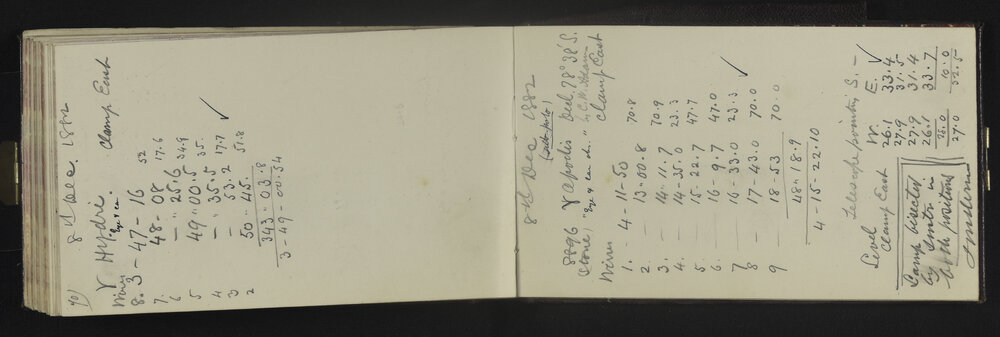 70)
8th Dec. 1882
γ Hydræ. Clamp East
Eye & ear
Wires
8. 3 - 47 - 16 52
7. 48 - 08 17.6
6 - " 25.6 34.9
5 49 " 00.5 35.
4 - " 35.5 17.7 ✓
3 - 53.2 51.8
2 50 " 45.
343 " 03.8
3 - 49 - 00.54
8th Dec 1882
(sub-polo)
8896 γ Apodis Decl. 78° 38' S.
Stone, "Eye & ear obs." by C.H. Adams
Clamp East
Wires
1. 4 - 11 - 50 70.8
2. - 13 - 00.8 70.9
3. - 14 " 11.7 23.3
4. - 14 - 35.0 47.7
5. - 15 - 22.7 47.0
6. - 16 - 9.7 23.3
7 - 16 - 33.0 70.0 ✓
8 - 17 - 43.0 70.0
9 - 18 - 53
48 " 18.9
4 - 15 - 22.10
Level Telescope pointing S. -
Clamp East
W. E. ✓
26.1 33.4
27.9 31.5
27.9 31.4
26.1 33.7
28.0 10.0
27.0 32.5
Lamp bisected
by Smtn in
both positions